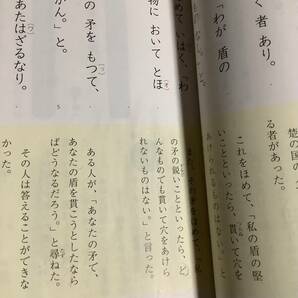 く者あり。
「わが盾の
めて、いはく、「わ
物においてとほ
の矛をもつて、
かん。」と。
あたはざるなり。
(ワ)
5
楚の国の
る者があった。
これをほめて、「私の盾の堅
いことといったら、貫いて穴を
あけられるものはない。
の矛の鋭いことといったら、ど
んなものでも貫いて穴をあけら
れないものはない。」と言った。
ある人が、「あなたの矛で、
あなたの盾を貫こうとしたなら
ばどうなるだろう。」と尋(たず)ねた。
その人は答えることができな
かった。